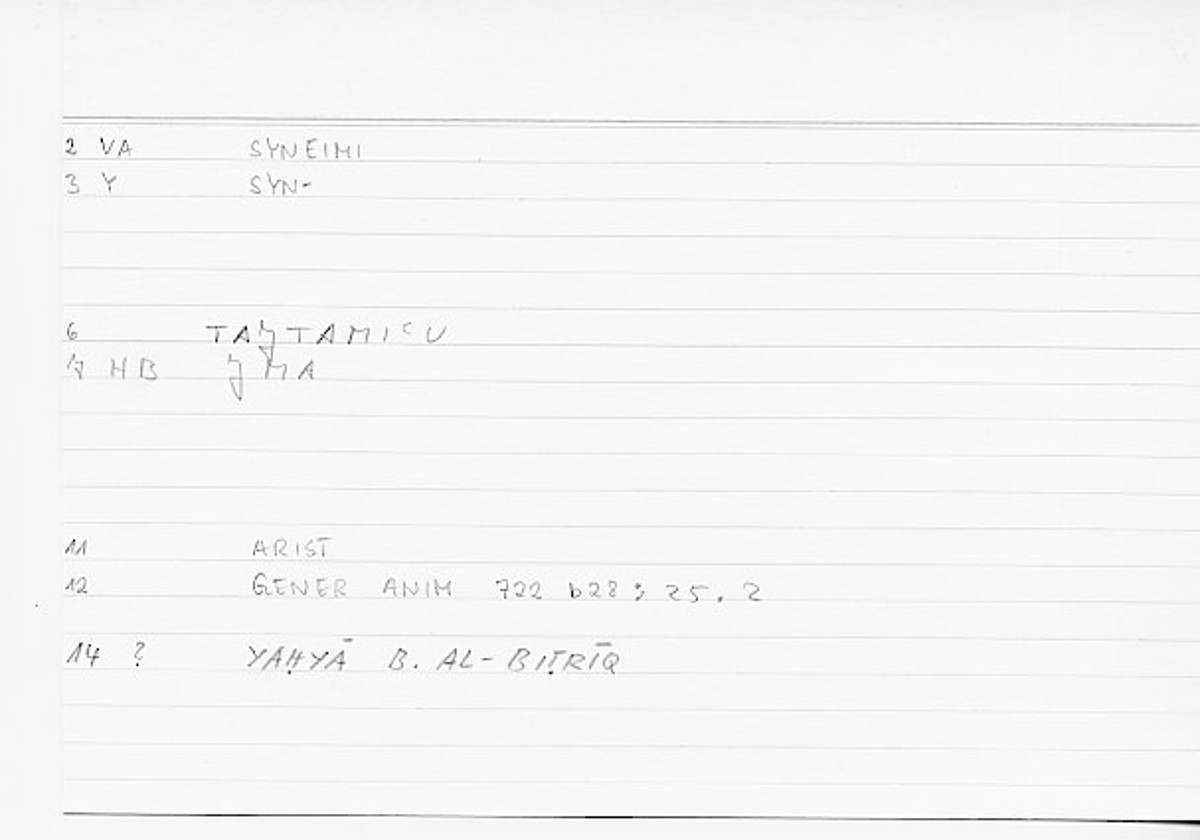 2 VA SYNEIMI
3 Y SYN-
6
HB
11 ARIST
12 GENER ANIM 722 b28 ; 25. 2
14 ? YAḤYĀ B. AL-BIṬRĪQ